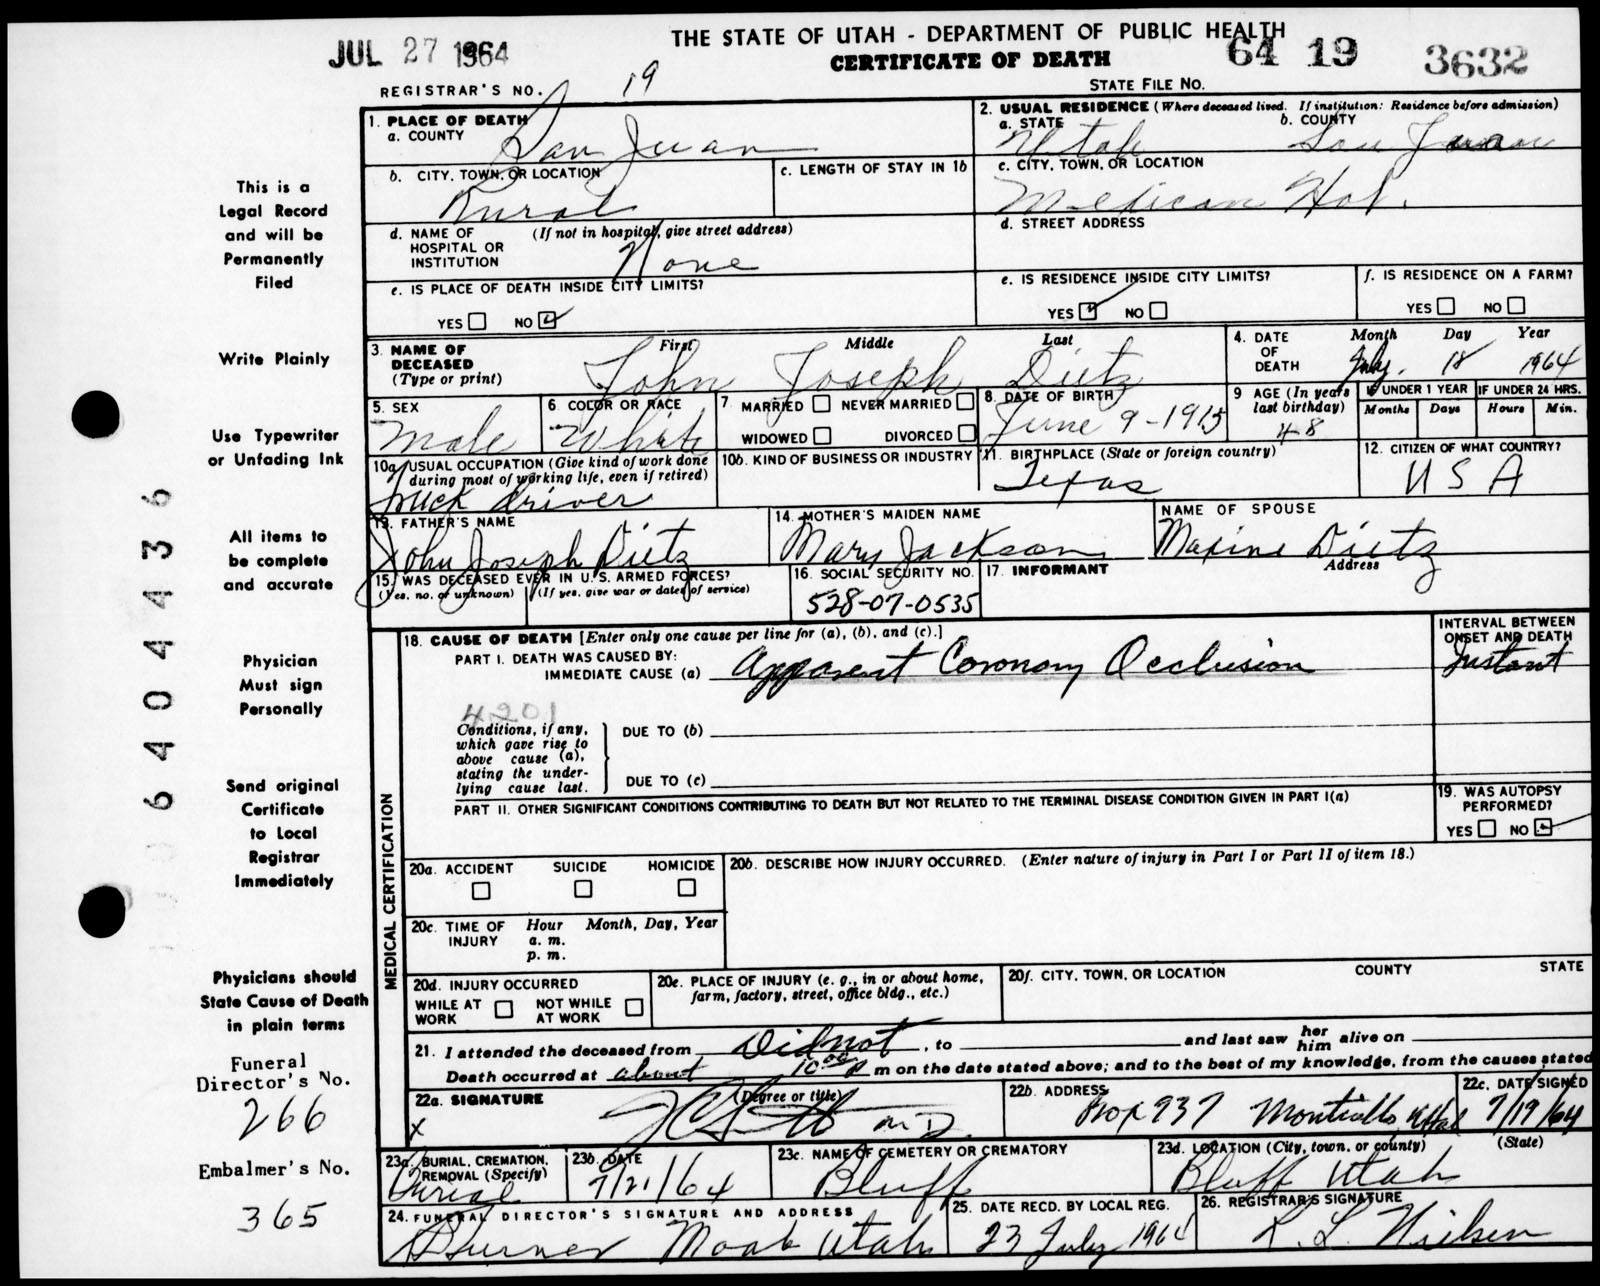 JUL 27 1964
THE STATE OF UTAH - DEPARTMENT OF PUBLIC HEALTH
CERTIFICATE OF DEATH
64 19 3632
REGISTRAR'S NO. 19
STATE FILE NO.
1. PLACE OF DEATH
a. COUNTY
San Juan
2. USUAL RESIDENCE (Where deceased lived. If institution: Residence before admission)
a. STATE
Utah
b. COUNTY
San Juan
b. CITY, TOWN, OR LOCATION
Rural
c. LENGTH OF STAY IN 1b
c. CITY, TOWN, OR LOCATION
Mexican Hat.
d. NAME OF HOSPITAL OR INSTITUTION
(If not in hospital, give street address)
None
d. STREET ADDRESS
e. IS PLACE OF DEATH INSIDE CITY LIMITS?
YES NO
e. IS RESIDENCE INSIDE CITY LIMITS?
YES NO
f. IS RESIDENCE ON A FARM?
YES NO
3. NAME OF DECEASED
(Type or print)
First Middle Last
John Joseph Dietz
4. DATE OF DEATH
Month Day Year
July. 18 1964
5. SEX
Male
6. COLOR OR RACE
White
7. MARRIED NEVER MARRIED
WIDOWED DIVORCED
8. DATE OF BIRTH
June 9-1915
9 AGE (In years last birthday)
48
IF UNDER 1 YEAR
Months Days
IF UNDER 24 HRS.
Hours Min.
10a. USUAL OCCUPATION (Give kind of work done during most of working life, even if retired)
truck driver
10b. KIND OF BUSINESS OR INDUSTRY
11. BIRTHPLACE (State or foreign country)
Texas
12. CITIZEN OF WHAT COUNTRY?
USA
13. FATHER'S NAME
John Joseph Dietz
14. MOTHER'S MAIDEN NAME
Mary Jackson
NAME OF SPOUSE
Maxine Dietz
15. WAS DECEASED EVER IN U.S. ARMED FORCES?
(Yes, no, or unknown) (If yes, give war or dates of service)
16. SOCIAL SECURITY NO.
528-07-0535
17. INFORMANT
Address
MEDICAL CERTIFICATION
18. CAUSE OF DEATH [Enter only one cause per line for (a), (b), and (c).]
PART I. DEATH WAS CAUSED BY:
IMMEDIATE CAUSE (a) Apparent Coronary Occlusion
INTERVAL BETWEEN ONSET AND DEATH
Instant
4201
Conditions, if any, which gave rise to above cause (a), stating the underlying cause last.
DUE TO (b)
DUE TO (c)
PART II. OTHER SIGNIFICANT CONDITIONS CONTRIBUTING TO DEATH BUT NOT RELATED TO THE TERMINAL DISEASE CONDITION GIVEN IN PART I(a)
19. WAS AUTOPSY PERFORMED?
YES NO
20a. ACCIDENT SUICIDE HOMICIDE
20b. DESCRIBE HOW INJURY OCCURRED. (Enter nature of injury in Part I or Part II of item 18.)
20c. TIME OF INJURY
Hour Month, Day, Year
a. m.
p. m.
20d. INJURY OCCURRED
WHILE AT WORK NOT WHILE AT WORK
20e. PLACE OF INJURY (e. g., in or about home, farm, factory, street, office bldg., etc.)
20f. CITY, TOWN, OR LOCATION COUNTY STATE
21. I attended the deceased from Did not, to and last saw her him alive on
Death occurred at about 10 00 P m on the date stated above; and to the best of my knowledge, from the causes stated
22a. SIGNATURE (Degree or title)
X M.D.
22b. ADDRESS
Box 937 Monticello, Utah
22c. DATE SIGNED
7/19/64
23a. BURIAL, CREMATION, REMOVAL (Specify)
Burial
23b. DATE
7/21/64
23c. NAME OF CEMETERY OR CREMATORY
Bluff
23d. LOCATION (City, town, or county) (State)
Bluff Utah
24. FUNERAL DIRECTOR'S SIGNATURE AND ADDRESS
Moab Utah
25. DATE RECD. BY LOCAL REG.
23 July 1964
26. REGISTRAR'S SIGNATURE
L. L. Nielsen
This is a
Legal Record
and will be
Permanently
Filed
Write Plainly
Use Typewriter
or Unfading Ink
All items to
be complete
and accurate
Physician
Must sign
Personally
Send original
Certificate
to Local
Registrar
Immediately
Physicians should
State Cause of Death
in plain terms
Funeral
Director's No.
266
Embalmer's No.
365
6404436